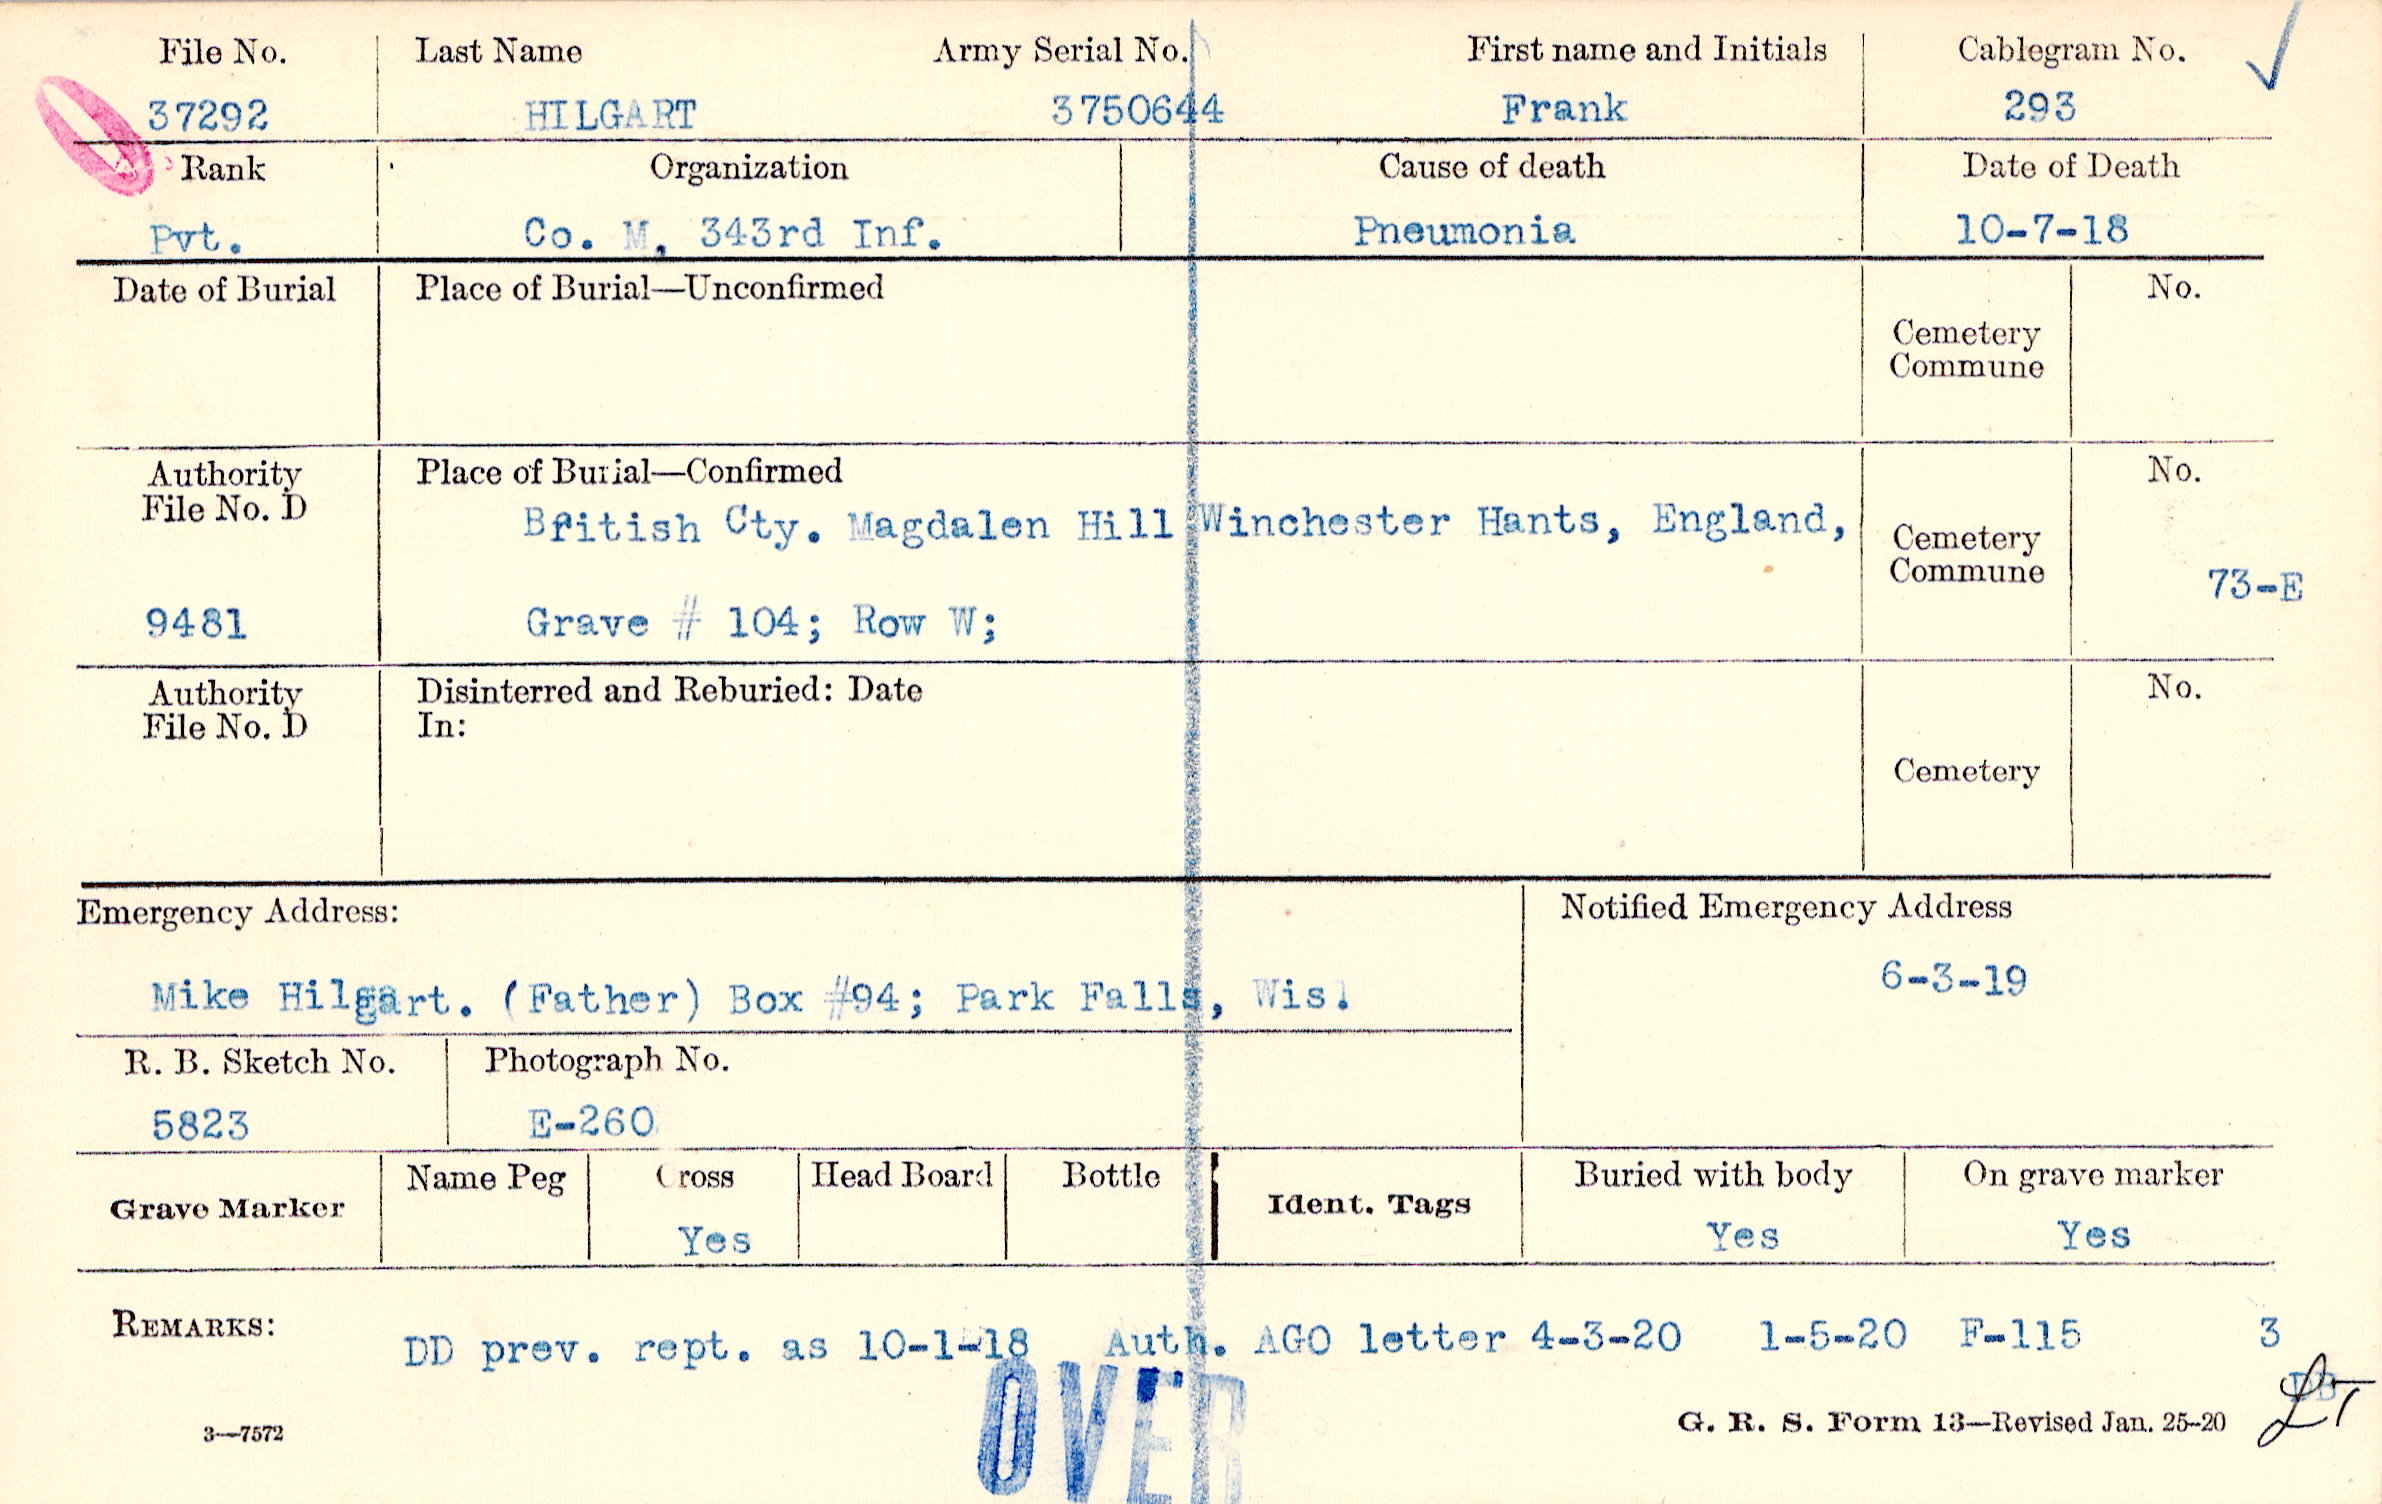 File No. Last Name Army Serial No. First name and Initials Cablegram No.
37292 HILGART 3750644 Frank 293
Rank Organization Cause of death Date of Death
Pvt. Co. M, 343rd Inf. Pneumonia 10-7-18
Date of Burial Place of Burial—Unconfirmed No.
Cemetery
Commune
Authority Place of Burial—Confirmed No.
File No. D
British Cty. Magdalen Hill Winchester Hants, England,
Cemetery
Commune
73-E
9481 Grave # 104; Row W;
Authority Disinterred and Reburied: Date No.
File No. D In:
Cemetery
Emergency Address: Notified Emergency Address
Mike Hilgart. (Father) Box #94; Park Falls, Wis. 6-3-19
R. B. Sketch No. Photograph No.
5823 E-260
Grave Marker Name Peg Cross Head Board Bottle Ident. Tags Buried with body On grave marker
Yes Yes Yes
REMARKS: DD prev. rept. as 10-1-18 Auth. AGO letter 4-3-20 1-5-20 F-115 3
OVER
3—7572 G. R. S. Form 13—Revised Jan. 25-20